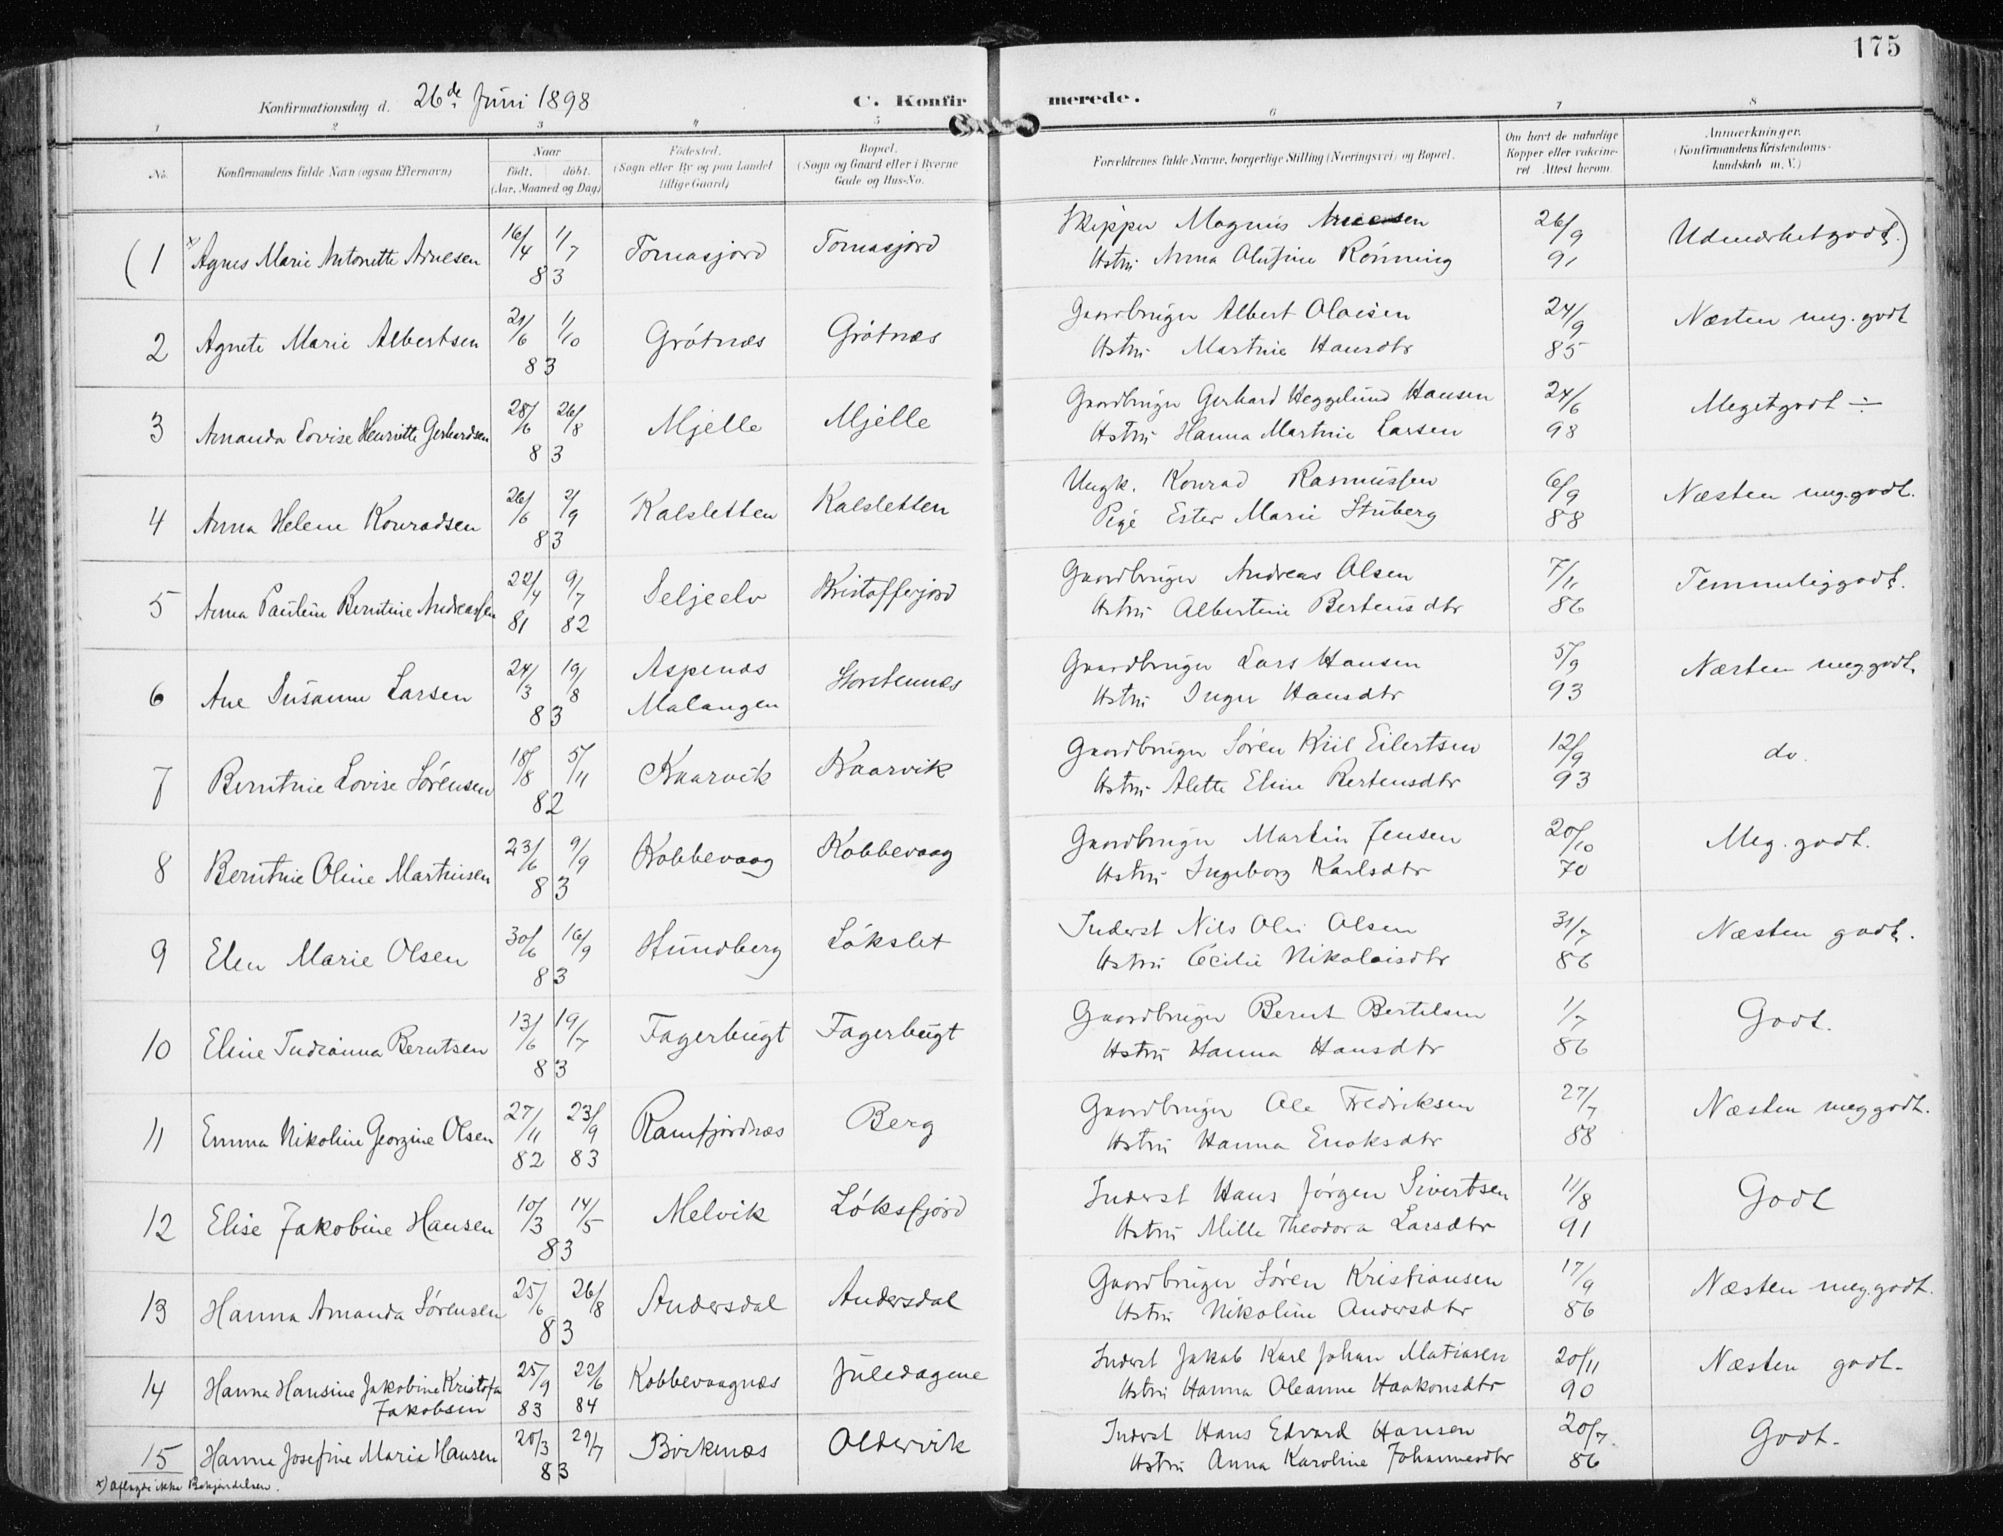 175
Konfirmationsdag d. 26de Juni 1898
C. Konfirmerede.
1 2 3 4 5 6 7 8
No. Konfirmandens fulde Navn (ogsaa Efternavn) Naar født. døbt. (Aar, Maaned og Dag) Fødested. (Sogn eller By og paa Landet tillige Gaard) Bopæl. (Sogn og Gaard eller i Byerne Gade og Hus-No. Forældrenes fulde Navne, borgerlige Stilling (Næringsvei) og Bopæl. Om havt de naturlige Kopper eller vaccineret Attest herom Anmærkninger. (Konfirmandens Kristendomskundskab m. V.)
(1 x) Agnes Marie Antonette Arnesen 16/4 1/7 83 Tomasjord Tomasjord Skipper Magnus Arnesen 26/9 91 Udmærketgodt.)
Hstru Anna Olufine Rønning
2 Agnete Marie Albertsen 21/6 1/10 83 Grøtnæs Grøtnæs Gaardbruger Albert Olaisen 24/9 85 Næsten meg. godt
Hstru Martine Hansdtr
3 Amanda Lovise Henriette Gerhardsen 28/6 26/8 83 Mjelle Mjelle Gaardbruger Gerhard Heggelund Hansen 24/6 98 Megetgodt ÷
Hstru Hanna Martine Larsen
4 Anna Helene Konradsen 26/6 2/9 83 Kalsletten Kalsletten Ungk. Konrad Rasmussen 6/9 88 Næsten meg. godt.
Pige Ester Marie Stuberg
5 Anna Pauline Berntine Andreassen 22/4 81 9/7 82 Seljeelv Kristofferjord Gaardbruger Andreas Olsen 7/11 86 Temmeliggodt.
Hstru Albertine Berteusdtr
6 Ane Susanne Larsen 24/3 19/8 83 Aspenæs Malangen Storstennæs Gaardbruger Lars Hansen 5/9 93 Næsten meg godt.
Hstru Inger Hansdtr
7 Berntine Lovise Sørensen 18/8 5/11 82 Kaarvik Kaarvik Gaardbruger Søren Kiil Eilertsen 12/9 93 do.
Hstru Alette Eline Bertensdtr
8 Berntine Oline Martinsen 23/6 9/9 83 Kobbevaag Kobbevaag Gaardbruger Martin Jensen 20/10 70 Meg. godt.
Hstru Ingeborg Karlsdtr
9 Elen Marie Olsen 30/6 16/9 83 Hundberg Løkslet Inderst Nils Olai Olsen 31/7 86 Næsten godt.
Hstru Cecilie Nikolaisdtr
10 Eline Indianna Berntsen 13/6 19/7 83 Fagerbugt Fagerbugt Gaardbruger Bernt Bertelsen 1/7 86 Godt.
Hstru Hanna Hansdtr
11 Emma Nikoline Georgine Olsen 27/11 82 23/9 83 Ramfjordnæs Berg Gaardbruger Ole Fredriksen 27/7 88 Næsten meg godt.
Hstru Hanna Enoksdtr
12 Elise Jakobine Hansen 10/3 14/5 83 Melvik Løksfjord Inderst Hans Jørgen Sivertsen 11/8 91 Godt
Hstru Mille Theodora Larsdtr
13 Hanna Amanda Sørensen 25/6 26/8 83 Andersdal Andersdal Gaardbruger Søren Kristiansen 17/9 86 Næsten meg. godt.
Hstru Nikoline Andersdtr
14 Hanna Hansine Jakobine Kristofa Jakobsen 25/9 83 22/6 84 Kobbevaagnæs Juledagene Inderst Jakob Karl Johan Matiasen 20/11 90 Næsten godt.
Hstru Hanna Oleanne Haakonsdtr
15 Hanna Josefine Marie Hansen 20/3 29/7 83 Birkenæs Oldervik Inderst Hans Edvard Hansen 20/7. 86 Godt.
Hstru Anna Karoline Johannesdtr
x) Aflagde ikke Bekjendelsen.